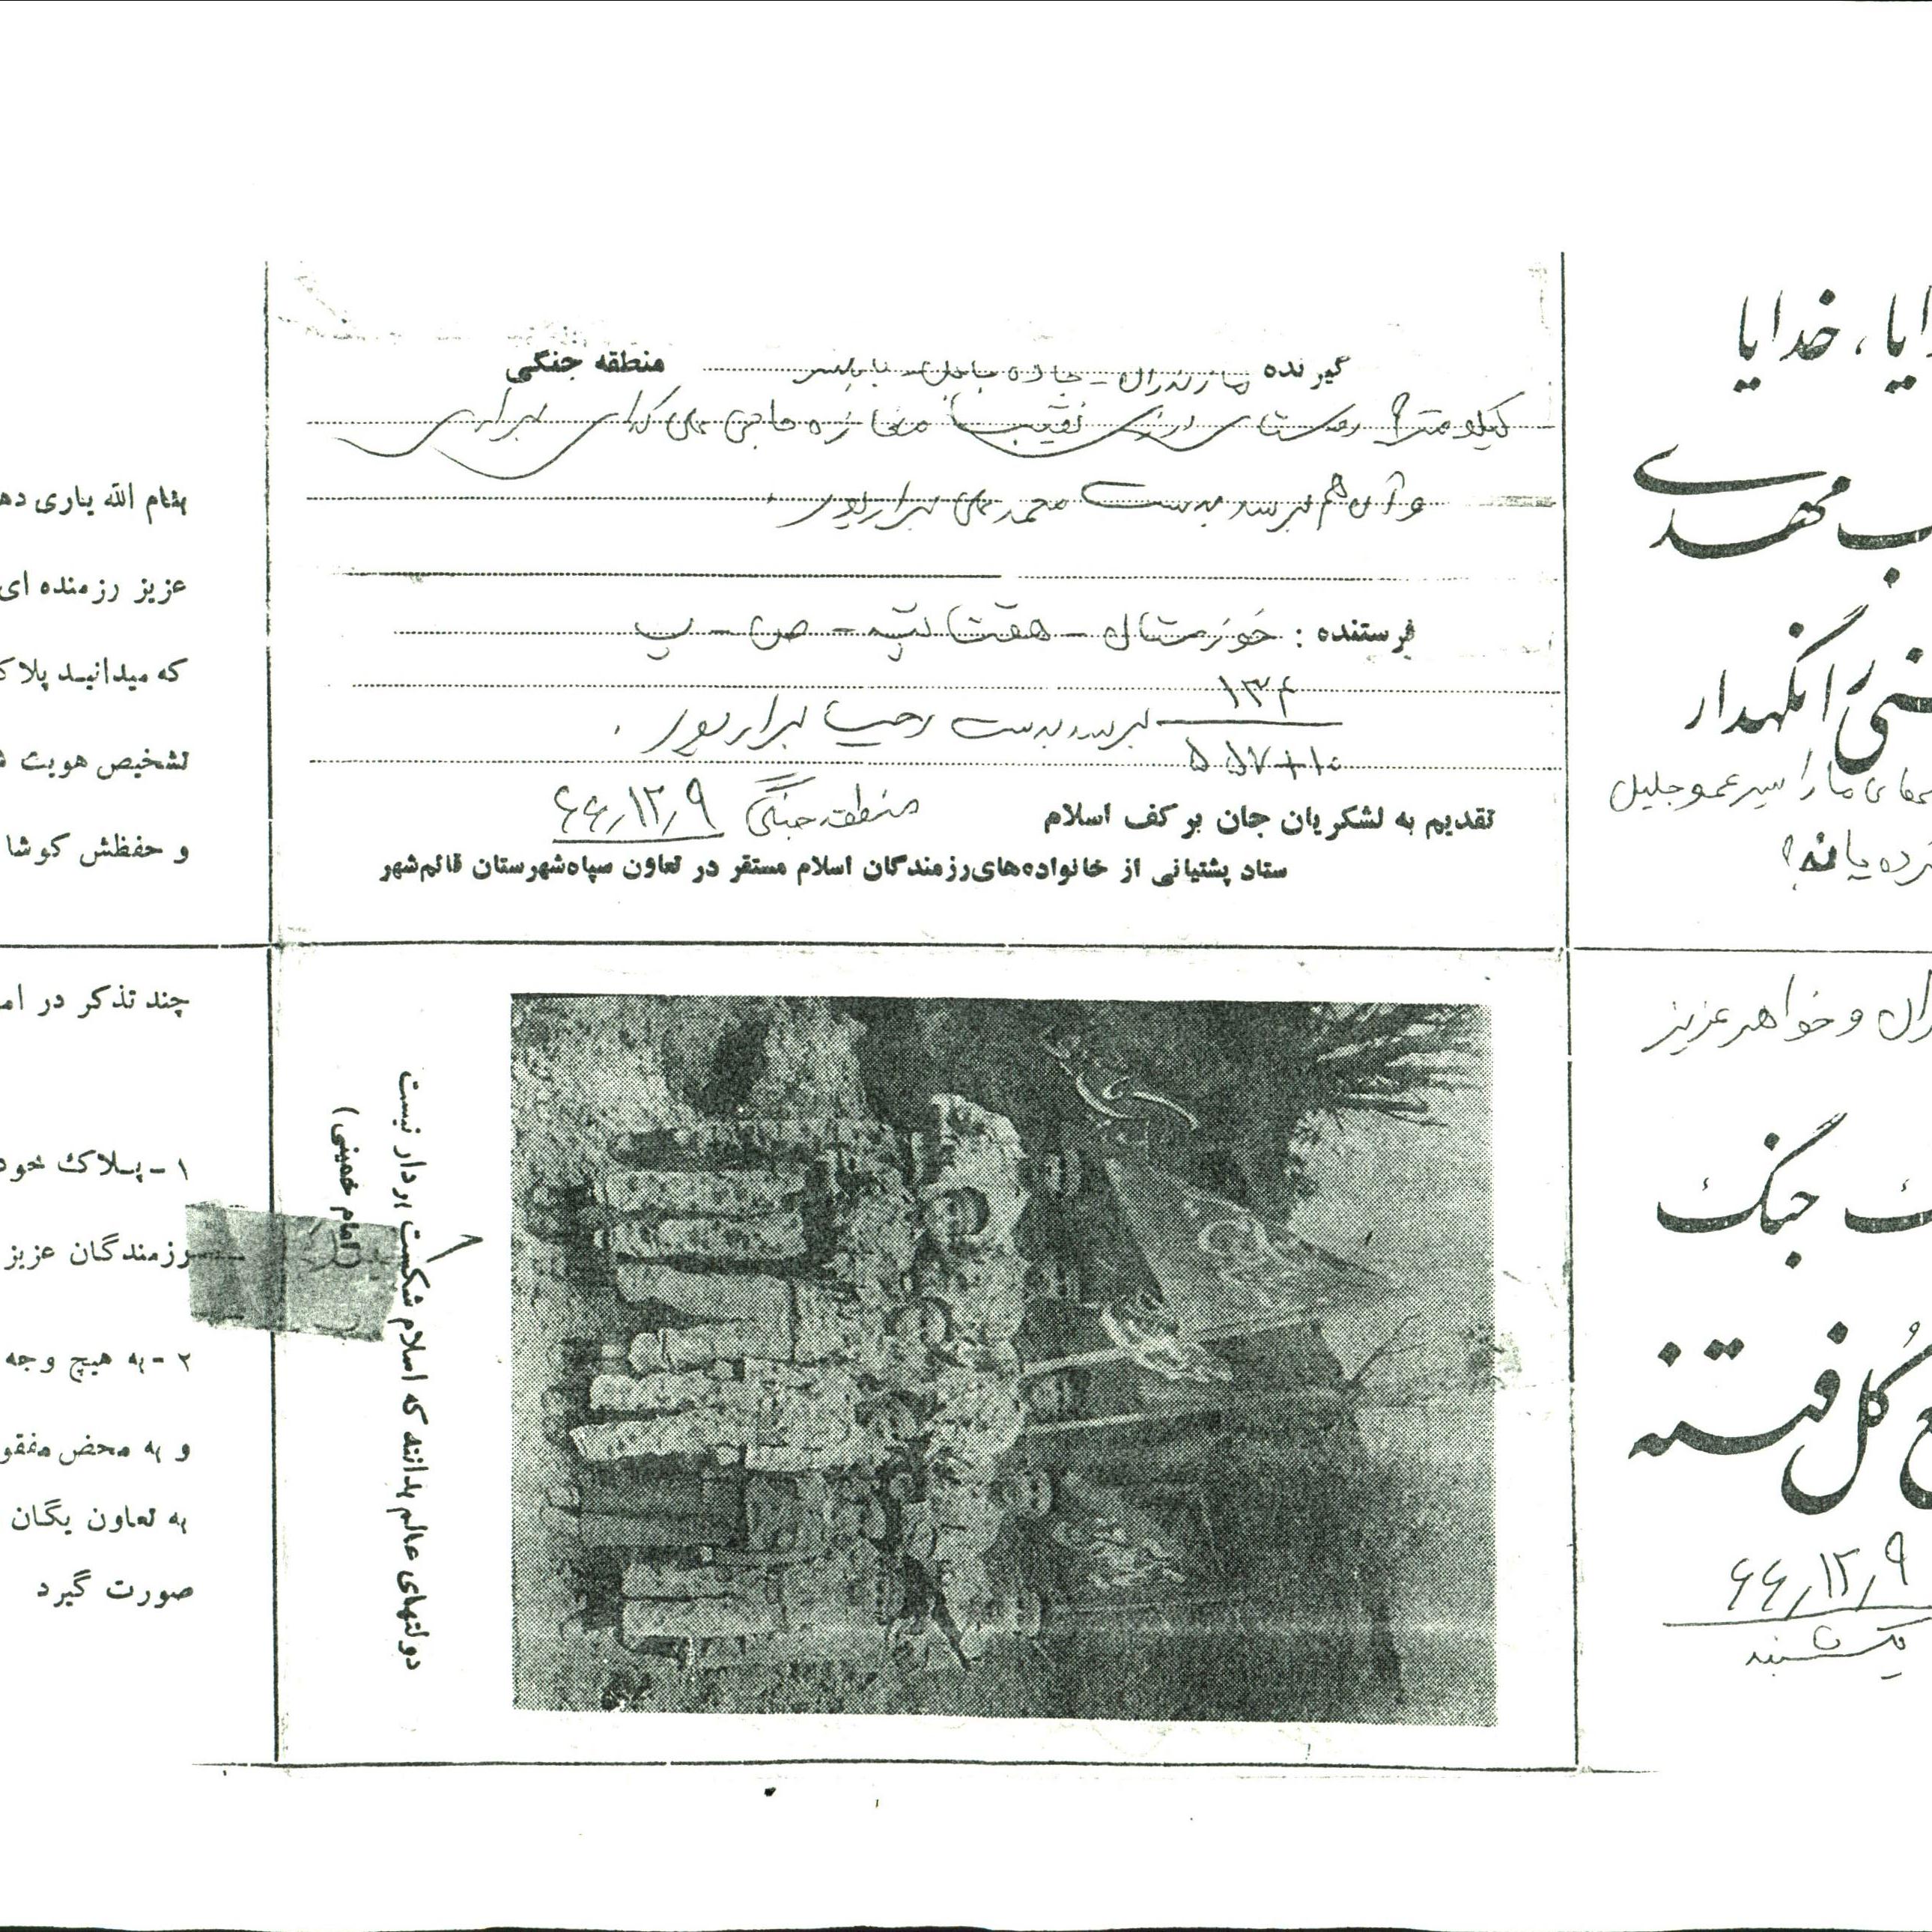 گیرنده مازندران - جاده بابل - بابلسر منطقه جنگی
کیلومتر ۹ روستای درزی نقیب مغازه حاجی علی گدای برادری
و آن هم برسد بدست محمد علی برارپور
فرستنده : خوزستان - هفت تپه - ص - پ
۱۳۴
برسد بدست رجب برارپور .
۵۵۷+۱۰
تقدیم به لشکریان جان بر کف اسلام منطقه جنگی ۶۴٫۱۲٫۹
ستاد پشتیبانی از خانواده‌های رزمندگان اسلام مستقر در تعاون سپاه شهرستان قائم‌شهر
دولتهای عالم بدانند که اسلام شکست بردار نیست
(امام خمینی)
ایا ، خدایا
ب مهدی
را نگهدار
ما را سیر عمو جلیل
یا نه؟
و خواهر عزیز
جنگ
کل فتنه
۶۴٫۱۲٫۹
یکشنبه
بنام الله یاری ده
عزیز رزمنده ای
که میدانید پلاک
تشخیص هویت
و حفظش کوشا
چند تذکر در ام
۱ - پلاک خود
رزمندگان عزیز
۲ - به هیچ وجه
و به محض مفقو
به تعاون یگان
صورت گیرد